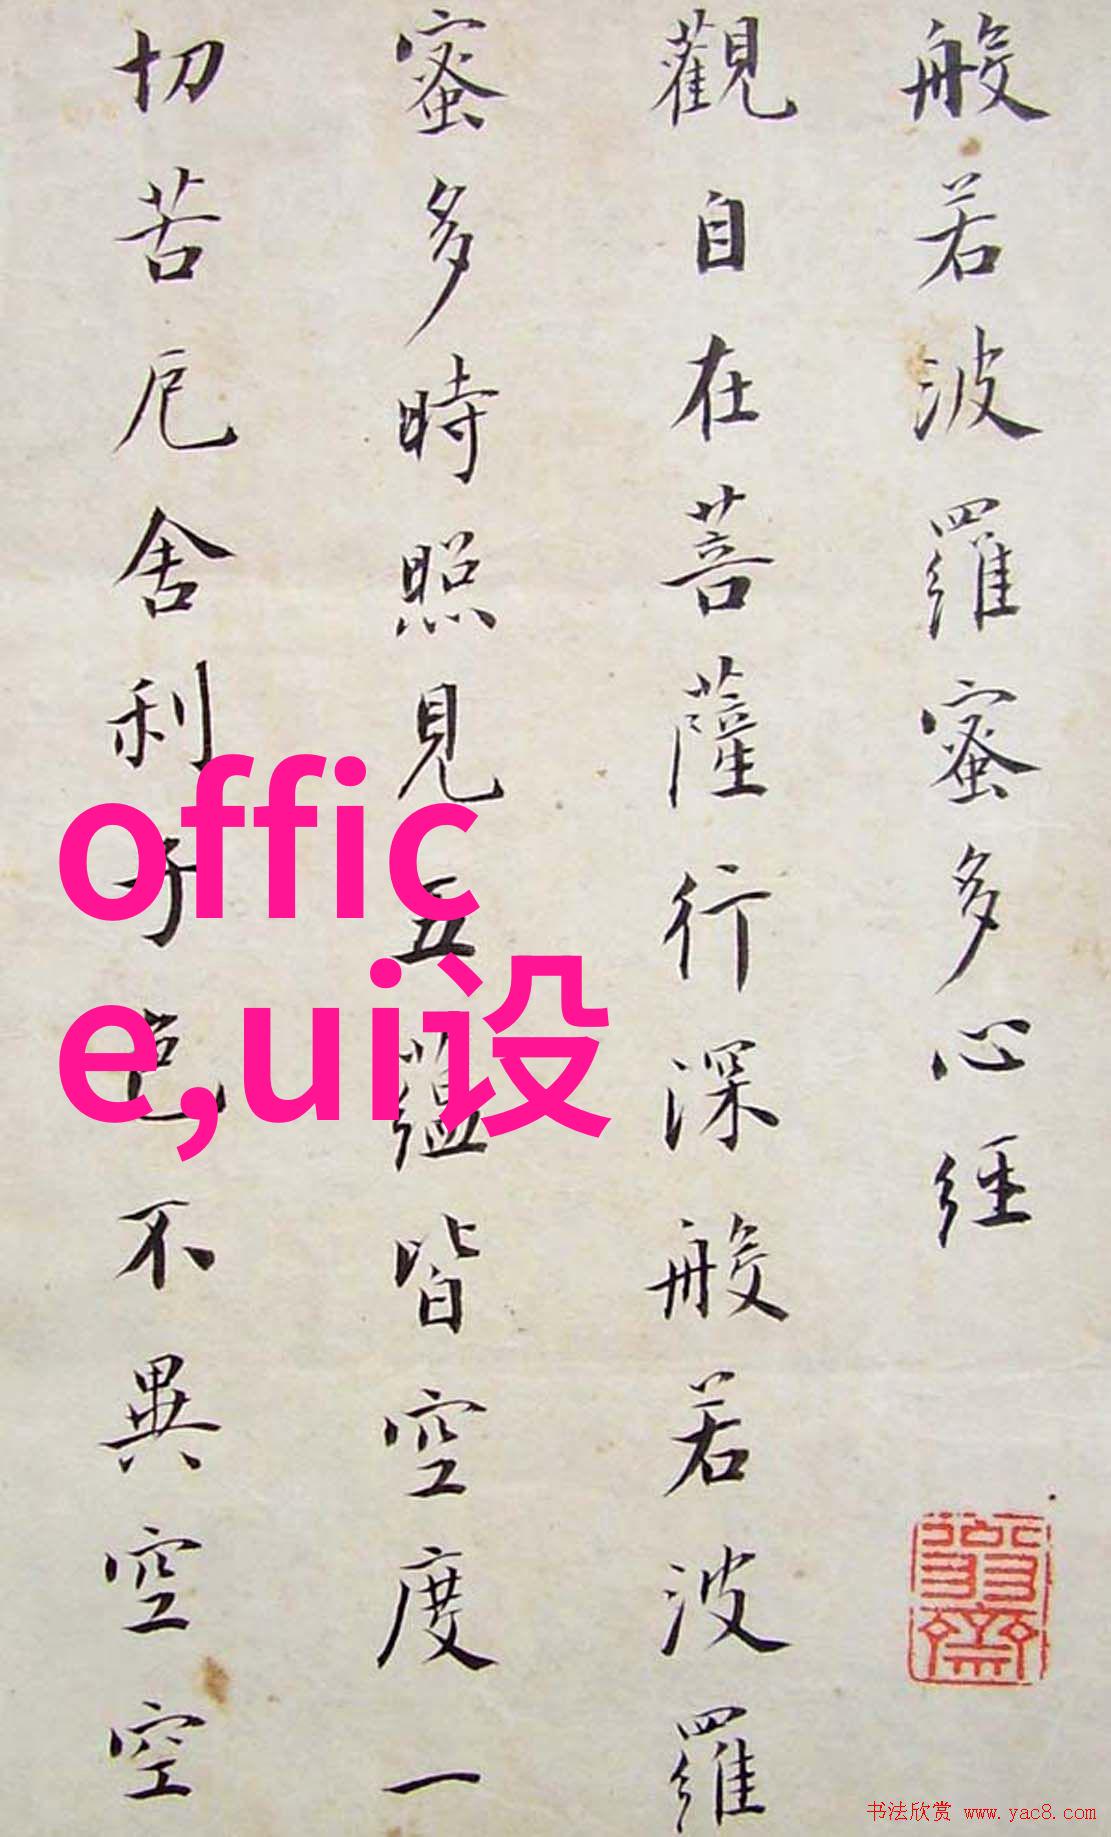 般若波羅蜜多心経
觀自在菩薩行深般若波羅
蜜多時照見五蘊皆空度一
切苦厄舍利子色不異空空
offic
e,ui设
书法欣赏 www.yac8.com